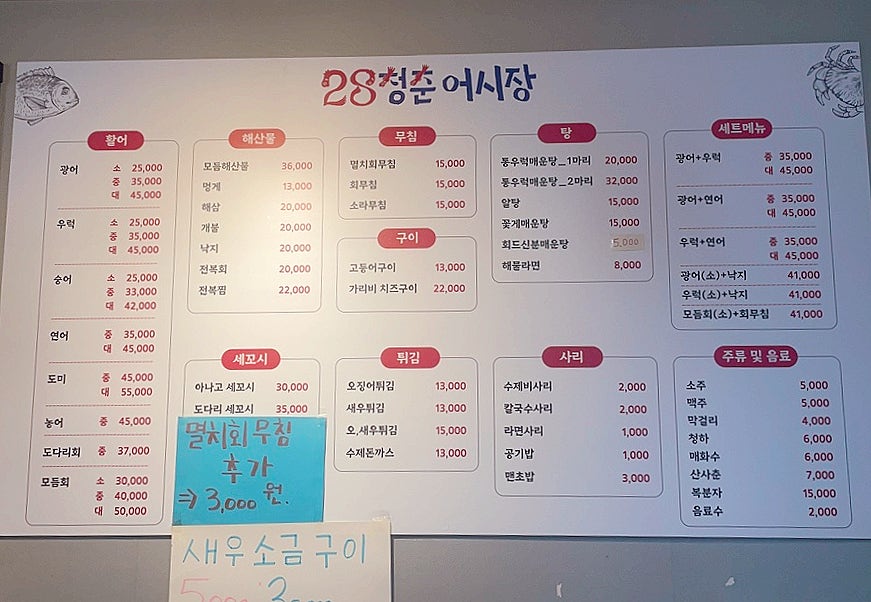 28청춘 어시장
활어
광어 소 25,000
중 35,000
대 45,000
우럭 소 25,000
중 35,000
대 45,000
숭어 소 25,000
중 33,000
대 42,000
연어 중 35,000
대 45,000
도미 중 45,000
대 55,000
농어 중 45,000
도다리회 중 37,000
모듬회 소 30,000
중 40,000
대 50,000
해산물
모듬해산물 36,000
멍게 13,000
해삼 20,000
개불 20,000
낙지 20,000
전복회 20,000
전복찜 22,000
세꼬시
아나고 세꼬시 30,000
도다리 세꼬시 35,000
멸치회 무침
추가
⇒ 3,000 원.
새우소금구이
무침
멸치회무침 15,000
회무침 15,000
소라무침 15,000
구이
고등어구이 13,000
가리비 치즈구이 22,000
튀김
오징어튀김 13,000
새우튀김 13,000
오,새우튀김 15,000
수제돈까스 13,000
탕
통우럭매운탕_1마리 20,000
통우럭매운탕_2마리 32,000
알탕 15,000
꽃게매운탕 15,000
회드신분매운탕 5,000
해물라면 8,000
사리
수제비사리 2,000
칼국수사리 2,000
라면사리 1,000
공기밥 1,000
맨초밥 3,000
세트메뉴
광어+우럭 중 35,000
대 45,000
광어+연어 중 35,000
대 45,000
우럭+연어 중 35,000
대 45,000
광어(소)+낙지 41,000
우럭(소)+낙지 41,000
모듬회(소)+회무침 41,000
주류 및 음료
소주 5,000
맥주 5,000
막걸리 4,000
청하 6,000
매화수 6,000
산사춘 7,000
복분자 15,000
음료수 2,000